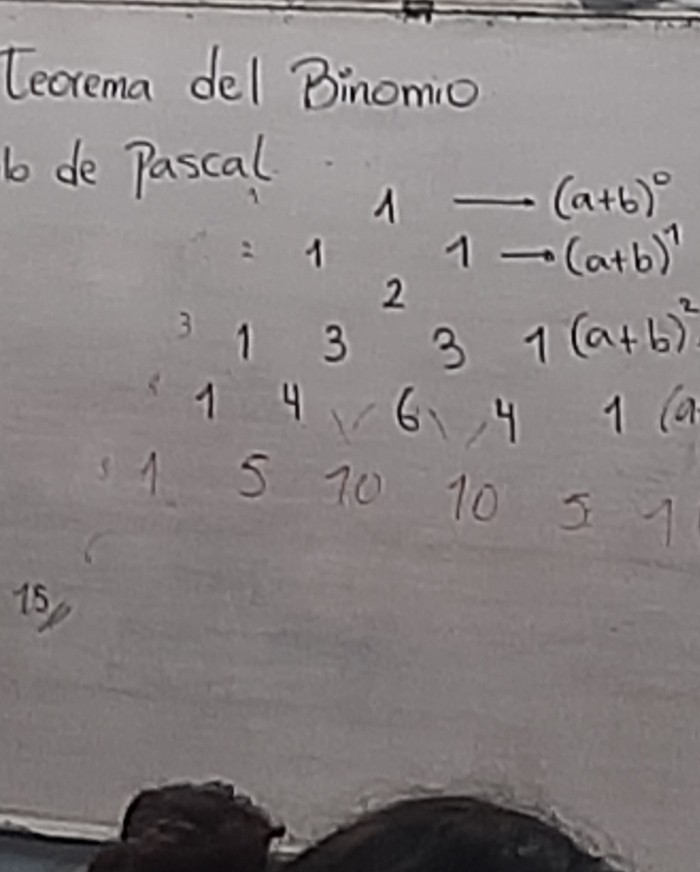 Teorema del Binomio
lo de Pascal
1 → (a+b)⁰
1 1 → (a+b)¹
2
3 1 3 3 1 (a+b)²
1 4 6 4 1 (a
1 5 10 10 5 1
15